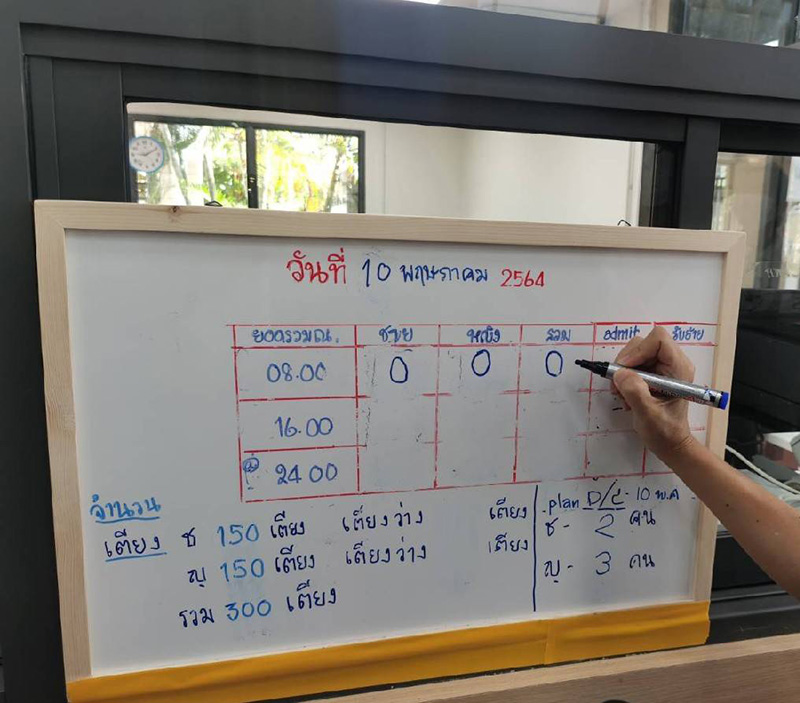 วันที่ 10 พฤษภาคม 2564
ยอดรวม ณ. ชาย หญิง รวม admit รับย้าย
08.00 0 0 0
16.00
24 00
จำนวน
เตียง ช 150 เตียง เตียงว่าง เตียง
ญ 150 เตียง เตียงว่าง เตียง
รวม 300 เตียง
plan D/C - 10 พ.ค
ช - 2 คน
ญ - 3 คน